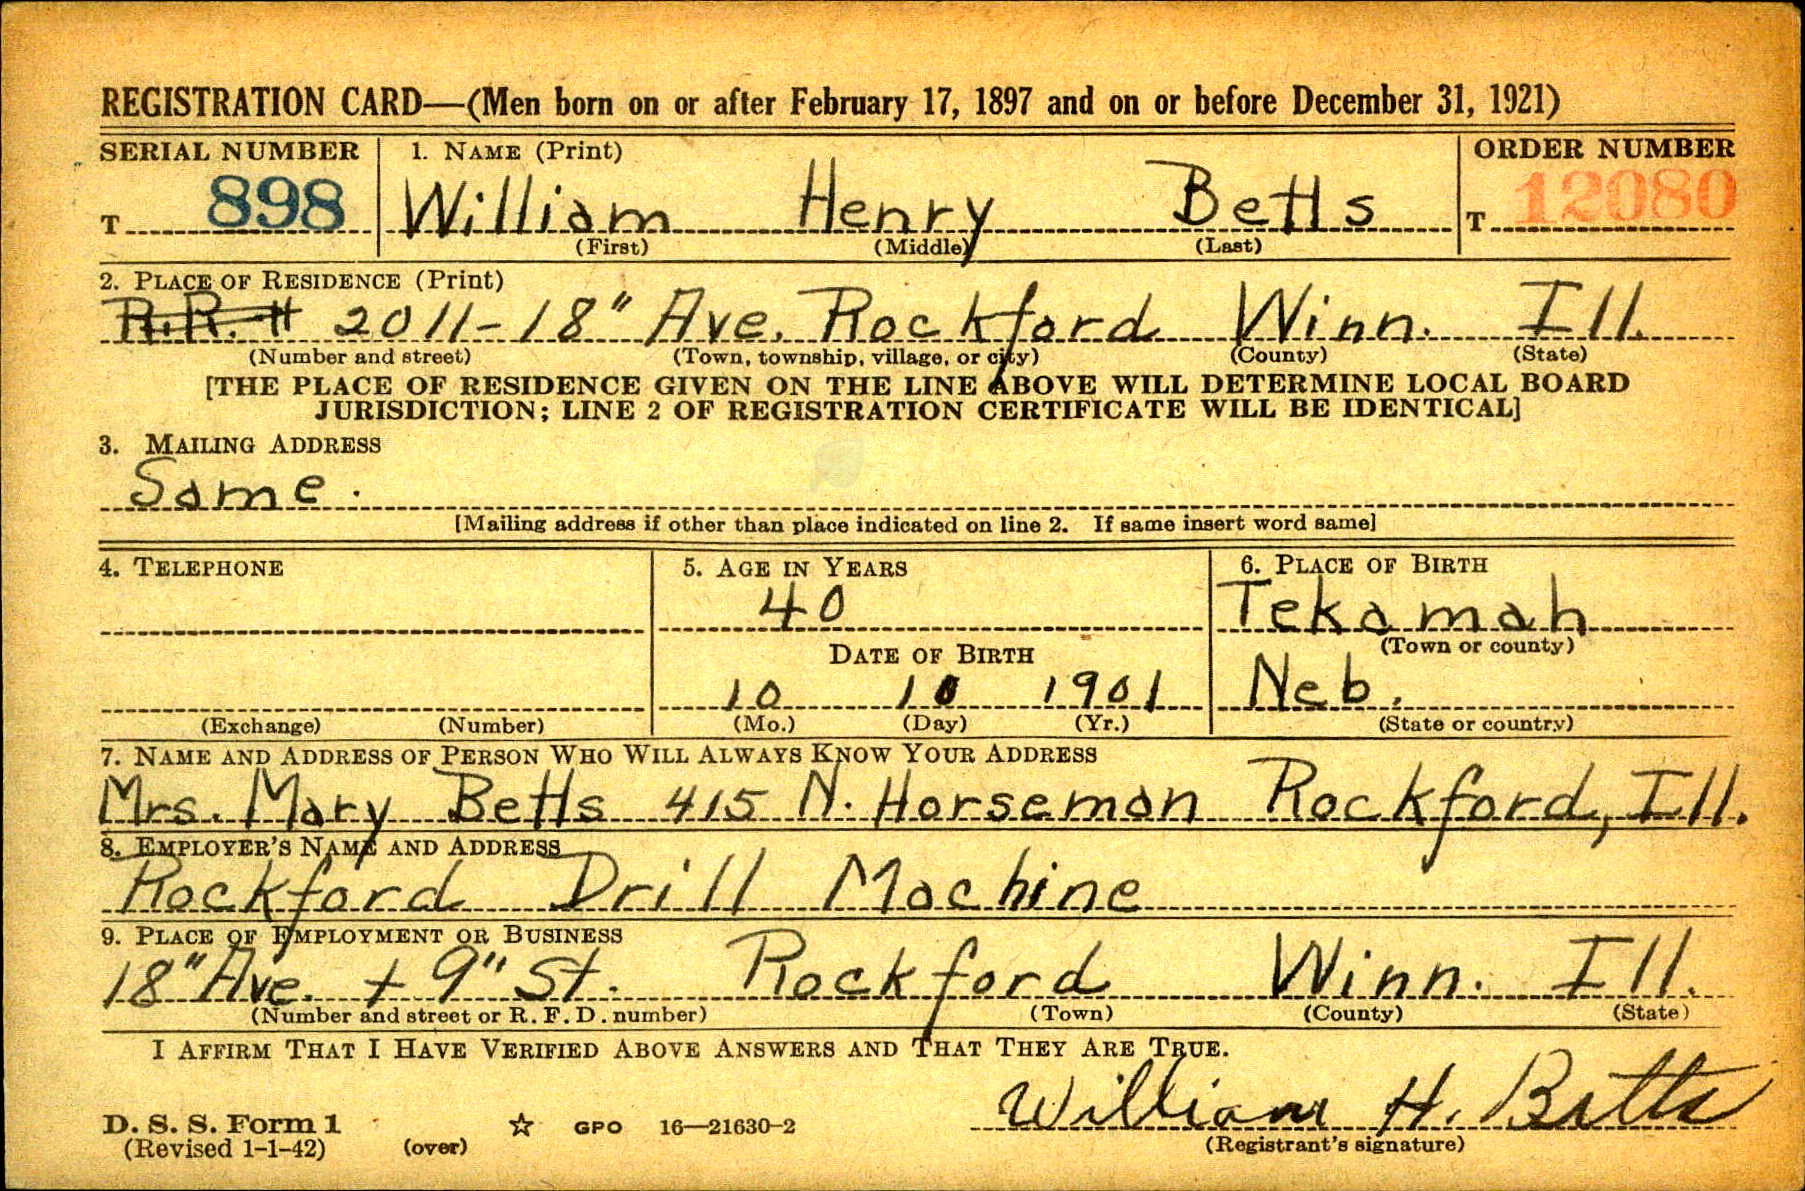 REGISTRATION CARD—(Men born on or after February 17, 1897 and on or before December 31, 1921)
SERIAL NUMBER 1. NAME (Print) ORDER NUMBER
T 898 William Henry Betts T 12080
(First) (Middle) (Last)
2. PLACE OF RESIDENCE (Print)
R.R. # 2011-18" Ave. Rockford Winn. Ill.
(Number and street) (Town, township, village, or city) (County) (State)
[THE PLACE OF RESIDENCE GIVEN ON THE LINE ABOVE WILL DETERMINE LOCAL BOARD
JURISDICTION; LINE 2 OF REGISTRATION CERTIFICATE WILL BE IDENTICAL]
3. MAILING ADDRESS
Same.
[Mailing address if other than place indicated on line 2. If same insert word same]
4. TELEPHONE 5. AGE IN YEARS 6. PLACE OF BIRTH
40 Tekamah
DATE OF BIRTH (Town or county)
10 10 1901 Neb.
(Exchange) (Number) (Mo.) (Day) (Yr.) (State or country)
7. NAME AND ADDRESS OF PERSON WHO WILL ALWAYS KNOW YOUR ADDRESS
Mrs. Mary Betts 415 N. Horseman Rockford, Ill.
8. EMPLOYER'S NAME AND ADDRESS
Rockford Drill Machine
9. PLACE OF EMPLOYMENT OR BUSINESS
18" Ave. + 9" St. Rockford Winn. Ill.
(Number and street or R. F. D. number) (Town) (County) (State)
I AFFIRM THAT I HAVE VERIFIED ABOVE ANSWERS AND THAT THEY ARE TRUE.
William H. Betts
D. S. S. Form 1 GPO 16—21630-2
(Revised 1-1-42) (over) (Registrant's signature)